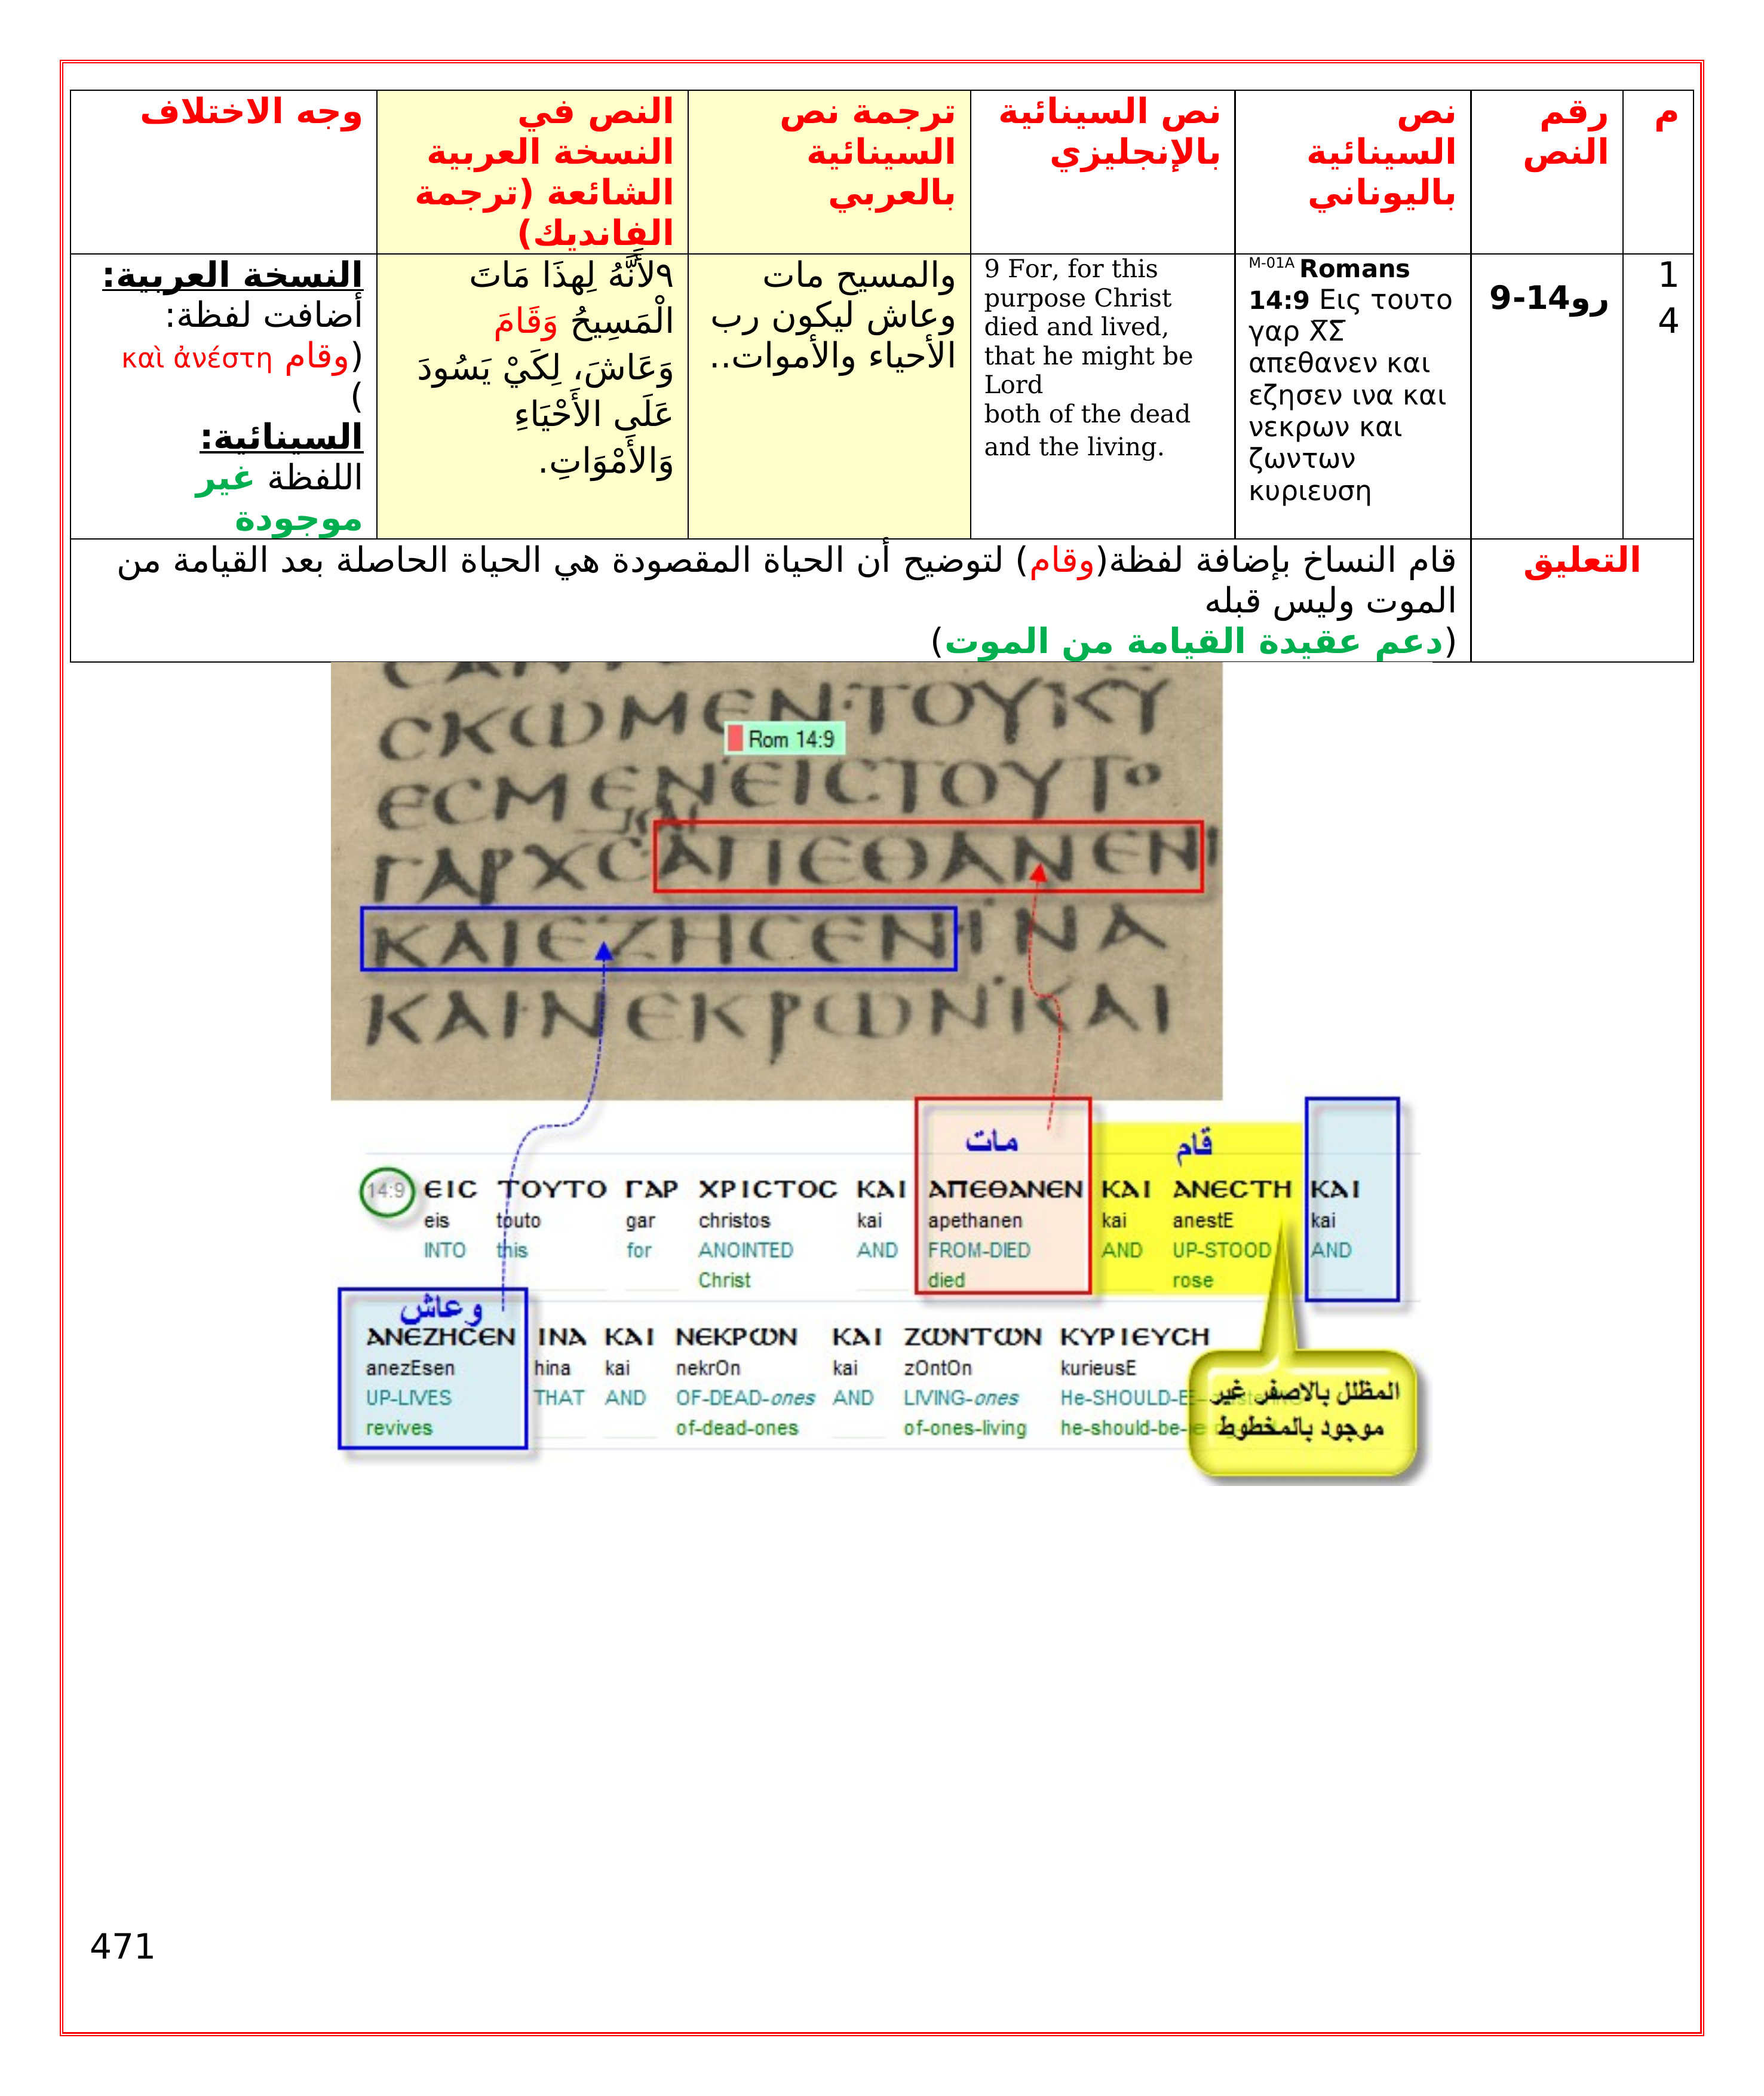 م
رقم
النص
نص
السينائية
باليوناني
نص السينائية
بالإنجليزي
ترجمة نص
السينائية
بالعربي
النص في
النسخة العربية
الشائعة (ترجمة
الفانديك)
وجه الاختلاف
1
4
رو14-9
M-01A Romans
14:9 Εις τουτο
γαρ Χ̅Σ̅
απεθανεν και
εζησεν ινα και
νεκρων και
ζωντων
κυριευση
9 For, for this
purpose Christ
died and lived,
that he might be
Lord
both of the dead
and the living.
والمسيح مات
وعاش ليكون رب
الأحياء والأموات..
٩لأَنَّهُ لِهذَا مَاتَ
الْمَسِيحُ وَقَامَ
وَعَاشَ، لِكَيْ يَسُودَ
عَلَى الأَحْيَاءِ
وَالأَمْوَاتِ.
النسخة العربية:
أضافت لفظة:
(وقام καὶ ἀνέστη
)
السينائية:
اللفظة غير
موجودة
التعليق
قام النساخ بإضافة لفظة(وقام) لتوضيح أن الحياة المقصودة هي الحياة الحاصلة بعد القيامة من
الموت وليس قبله
(دعم عقيدة القيامة من الموت)
ϹΚΩΜΕΝ·ΤΟΥΚΥ
Rom 14:9
ΕϹΜΕΝΕΙϹΤΟΥΤΟ
ΓΑΡΧϹΑΠΕΘΑΝΕΝ
ΚΑΙΕΖΗϹΕΝΙΝΑ
ΚΑΙΝΕΚΡΩΝΚΑΙ
مات
قام
14:9 ΕΙϹ ΤΟΥΤΟ ΓΑΡ ΧΡΙϹΤΟϹ ΚΑΙ ΑΠΕΘΑΝΕΝ ΚΑΙ ΑΝΕϹΤΗ ΚΑΙ
eis touto gar christos kai apethanen kai anestE kai
INTO this for ANOINTED AND FROM-DIED AND UP-STOOD AND
Christ died rose
وعاش
ΑΝΕΖΗϹΕΝ ΙΝΑ ΚΑΙ ΝΕΚΡΩΝ ΚΑΙ ΖΩΝΤΩΝ ΚΥΡΙΕΥϹΗ
anezEsen hina kai nekrOn kai zOntOn kurieusE
UP-LIVES THAT AND OF-DEAD-ones AND LIVING-ones He-SHOULD-
revives of-dead-ones of-ones-living he-should-be-
المظلل بالاصفر غير
موجود بالمخطوط
471